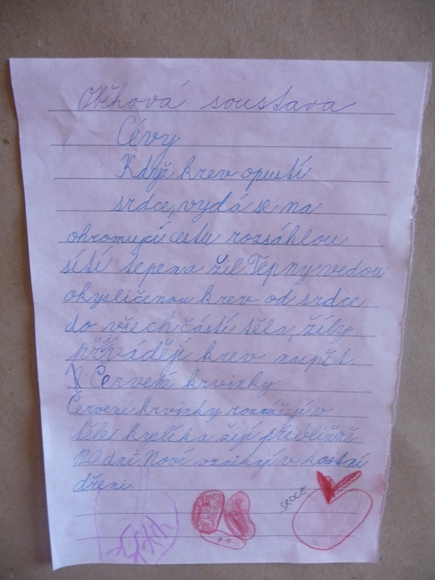 Oběhová soustava
Cévy
Když krev opustí
srdce, vydá se na
ohromující cestu rozsáhlou
sítí tepen a žil. Tepny vedou
okysličenou krev od srdce
do všech částí těla, žíly
přivádějí krev nazpět.
Červení krvinky
Červené krvinky roznášejí v
těle kyslík a žijí přibližně
120 dní. Nové vznikají v kostní
dřeni.
SRDCE